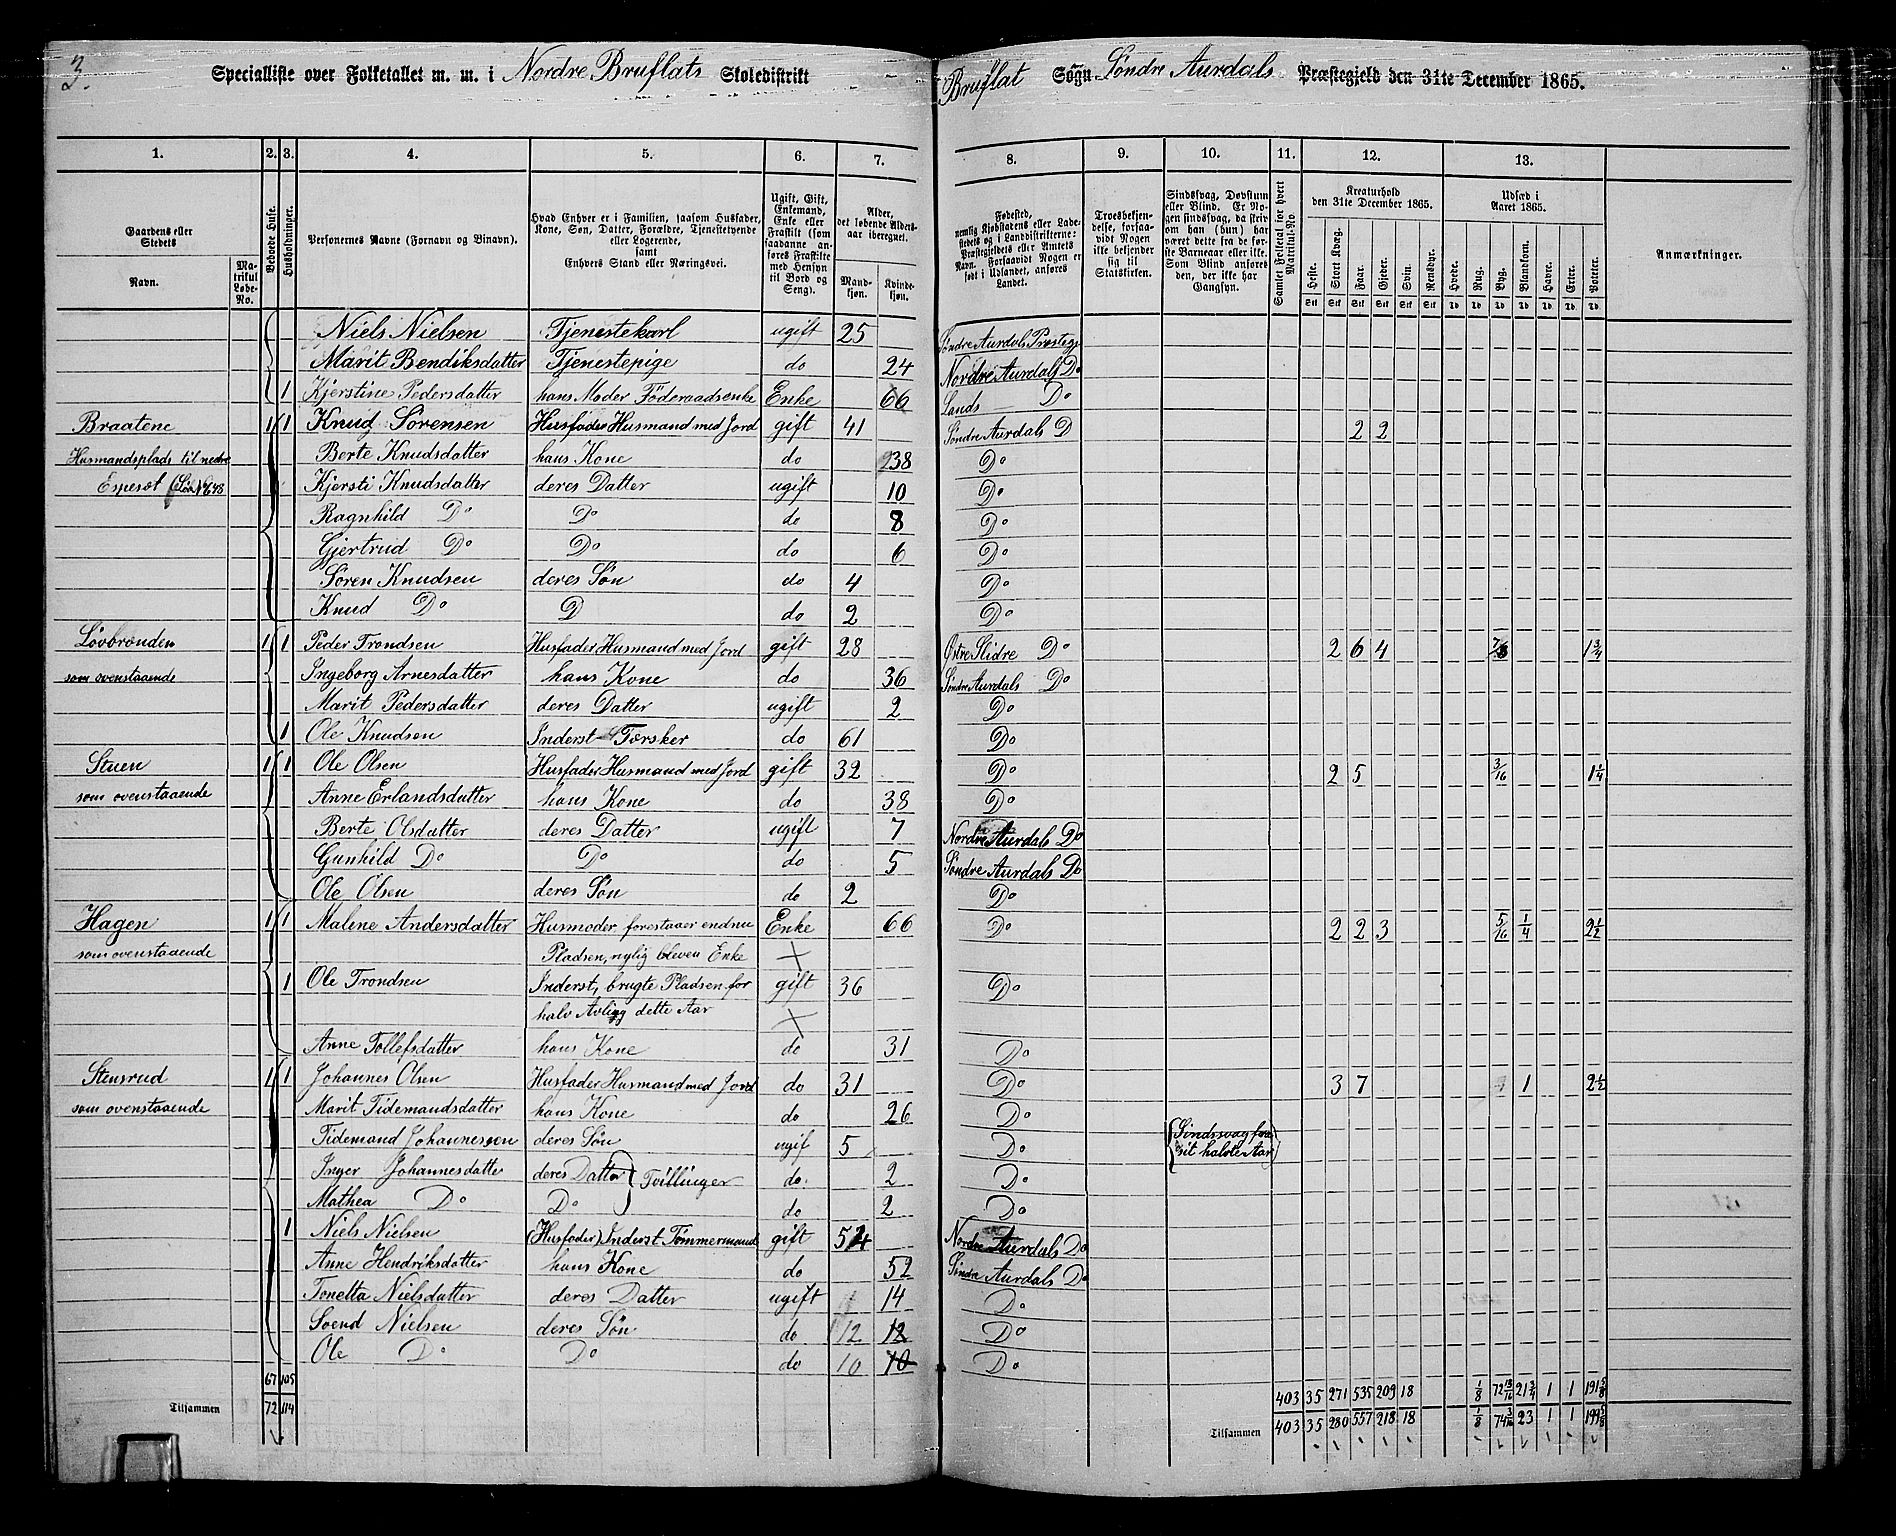 3.
Specialliste over Folketallet m. m. i Nordre Bruflats Skoledistrikt
Bruflat Sogn Søndre Aurdals Præstegjeld den 31te December 1865.
1. 2. 3. 4. 5. 6. 7. 8. 9. 10. 11. 12. 13.
Gaardens eller Stedets
Navn.
Matrikul Løbe-No.
Beboede Huse.
Husholdninger.
Personernes Navne (Fornavn og Binavn).
Hvad Enhver er i Familien, saasom Husfader,
Kone, Søn, Datter, Forældre, Tjenestetyende
eller Logerende,
samt
Enhvers Stand eller Næringsvei.
Ugift, Gift,
Enkemand,
Enke eller
Fraskilt (som
saadanne anføres
Fraskilte
med Hensyn
til Bord og
Seng).
Alder,
det løbende Aldersaar
iberegnet.
Mandkjøn.
Kvindekjøn.
Fødested,
nemlig Kjøbstadens eller Ladestedets
og i Landdistrikterne:
Præstegjeldets eller Amtets
Navn. Forsaavidt Nogen er
født i Udlandet, anføres
Landet.
Troesbekjendelse,
forsaavidt
Nogen
ikke bekjender
sig til
Statskirken.
Sindssvag, Døvstum
eller Blind. Er Nogen
sindssvag, da skriv
om han (hun) har
været dette fra de første
Barneaar eller ikke.
Som Blind anføres
den, der ikke har
Gangsyn.
Samlet Folketal for hvert Matrikul-No.
Kreaturhold
den 31te December 1865.
Heste. Stort Kvæg. Faar. Gjeder. Svin. Rensdyr.
Udsæd i
Aaret 1865.
Hvede. Rug. Byg. Blandkorn. Havre. Erter. Poteter.
Anmærkninger.
Stk Stk Stk Stk Stk Stk Td Td Td Td Td Td Td
Niels Nielsen Tjenestekarl ugift 25 Søndre Aurdals Præstegj
Marit Bendiksdatter Tjenestepige do 24 Nordre Aurdals Do
1 Kjerstine Pedersdatter hans Moder Föderaadsenke Enke 66 Lands Do
Braatene 1 1 Knud Sørensen Husfader Husmand med Jord gift 41 Søndre Aurdals D 2 2
Husmandsplads til nedre Berte Knudsdatter hans Kone do 38 Do
Espesæt Kjersti Knudsdatter deres Datter ugift 10 Do
Ragnhild Do Do do 8 Do
Gjertrud Do Do do 6 Do
Søren Knudsen deres Søn do 4 Do
Knud Do D do 2 Do
Løvbrænden 1 1 Peder Trondsen Husfader Husmand med Jord gift 28 Østre Slidre Do 2 6 4 1 3/4
som ovenstaaende Ingeborg Arnesdatter hans Kone do 36 Søndre Aurdals Do
Marit Pedersdatter deres Datter ugift 2 Do
1 Ole Knudsen Inderst Tærsker do 61 Do
Stuen 1 1 Ole Olsen Husfader Husmand med Jord gift 32 Do 2 5 3/16 1 1/4
som ovenstaaende Anne Erlandsdatter hans Kone do 38 Do
Berte Olsdatter deres Datter ugift 7 Nordre Aurdals Do
Gunhild Do Do do 5 Søndre Aurdals Do
Ole Olsen deres Søn do 2 Do
Hagen 1 1 Malene Andersdatter Husmoder forestaaer endnu Enke 66 Do 2 2 3 5/16 1/4 2 1/2
som ovenstaaende Pladsen, nylig bleven Enke
1 Ole Trondsen Inderst, brugte Pladsen for gift 36 Do
halv Avling dette Aar
Anne Tollefsdatter hans Kone do 31 Do
Stensrud 1 1 Johannes Olsen Husfader Husmand med Jord do 31 Do 3 7 1 2 1/2
som ovenstaaende Marit Tidemandsdatter hans Kone do 26 Do
Tidemand Johannessen deres Søn ugif 5 Do Sindssvag fra sit halvte Aar
Inger Johannesdatte deres Datter Tvillinger do. 2 Do
Mathea Do Do do 2 Do
1 Niels Nielsen (Husfader) Inderst Tømmermand gift 54 Nordre Aurdals Do
Anne Hendriksdatter hans Kone do 52 Søndre Aurdals Do
Tonetta Nielsdatter deres Datter ugift 14 Do
Svend Nielsen deres Søn do 12 12 Do
Ole Do Do do 10 10 Do
67 105 403 35 271 535 209 18 1/8 72 13/16 21 3/4 1 1 191 5/8
Tilsammen 72 114 Tilsammen 403 35 280 557 218 18 1/8 74 3/16 23 1 1 199 5/8